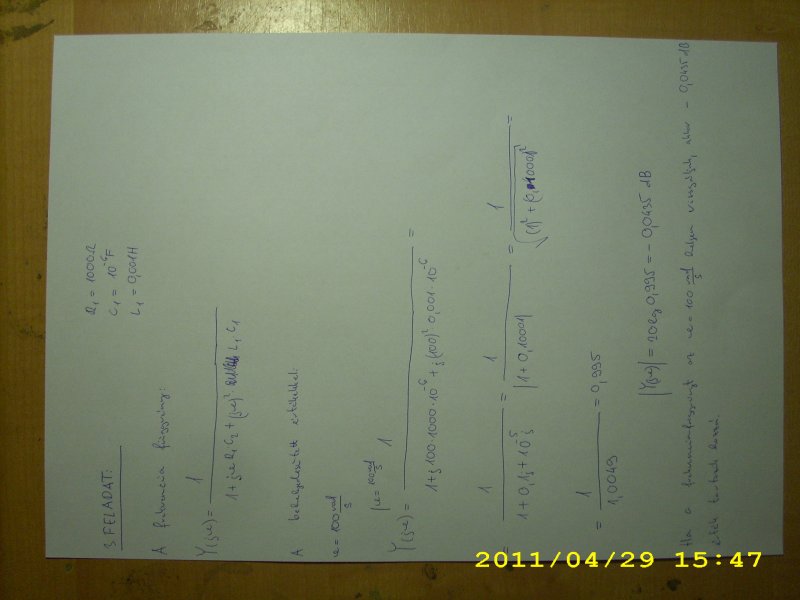 3. FELADAT:
R₁ = 1000Ω
C₁ = 10⁻⁶F
L₁ = 0,001H
A frekvencia függvény:
Y(jω) = 1 / (1 + jω R₁ C₂ + (jω)² L₁ C₁)
A behelyettesített értékekkel:
ω = 100 rad/s
|ω = 100 rad/s
Y(jω) = 1 / (1 + j 100·1000·10⁻⁶ + j(100)² 0,001·10⁻⁶) =
1 / (1 + 0,1j + 10⁻⁵j) = 1 / |1 + 0,10001| = 1 / √((1)² + (0,10001)²) =
= 1 / 1,0049 = 0,995
|Y(jω)| = 20 log 0,995 = - 0,0435 dB
Ha a frekvenciafüggvényt az ω = 100 rad/s helyen vizsgáljuk, akkor - 0,0435 dB
érték tartozik hozzá.
2011/04/29 15:47